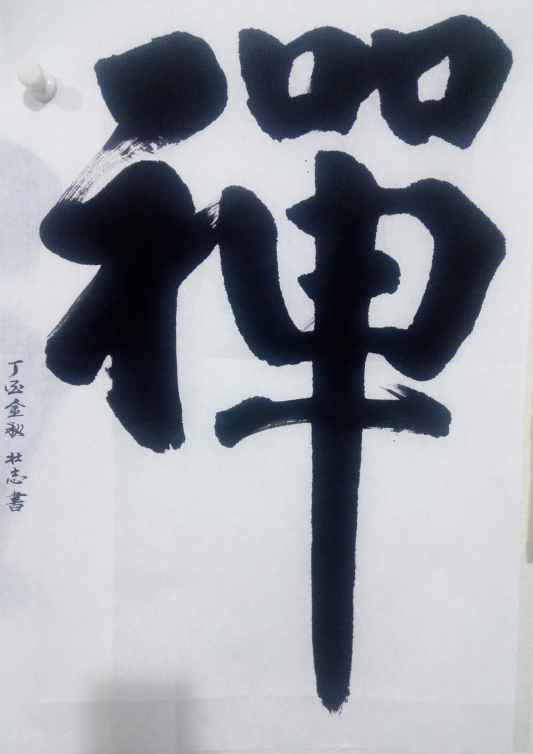 禪
丁酉金秋 壮志書